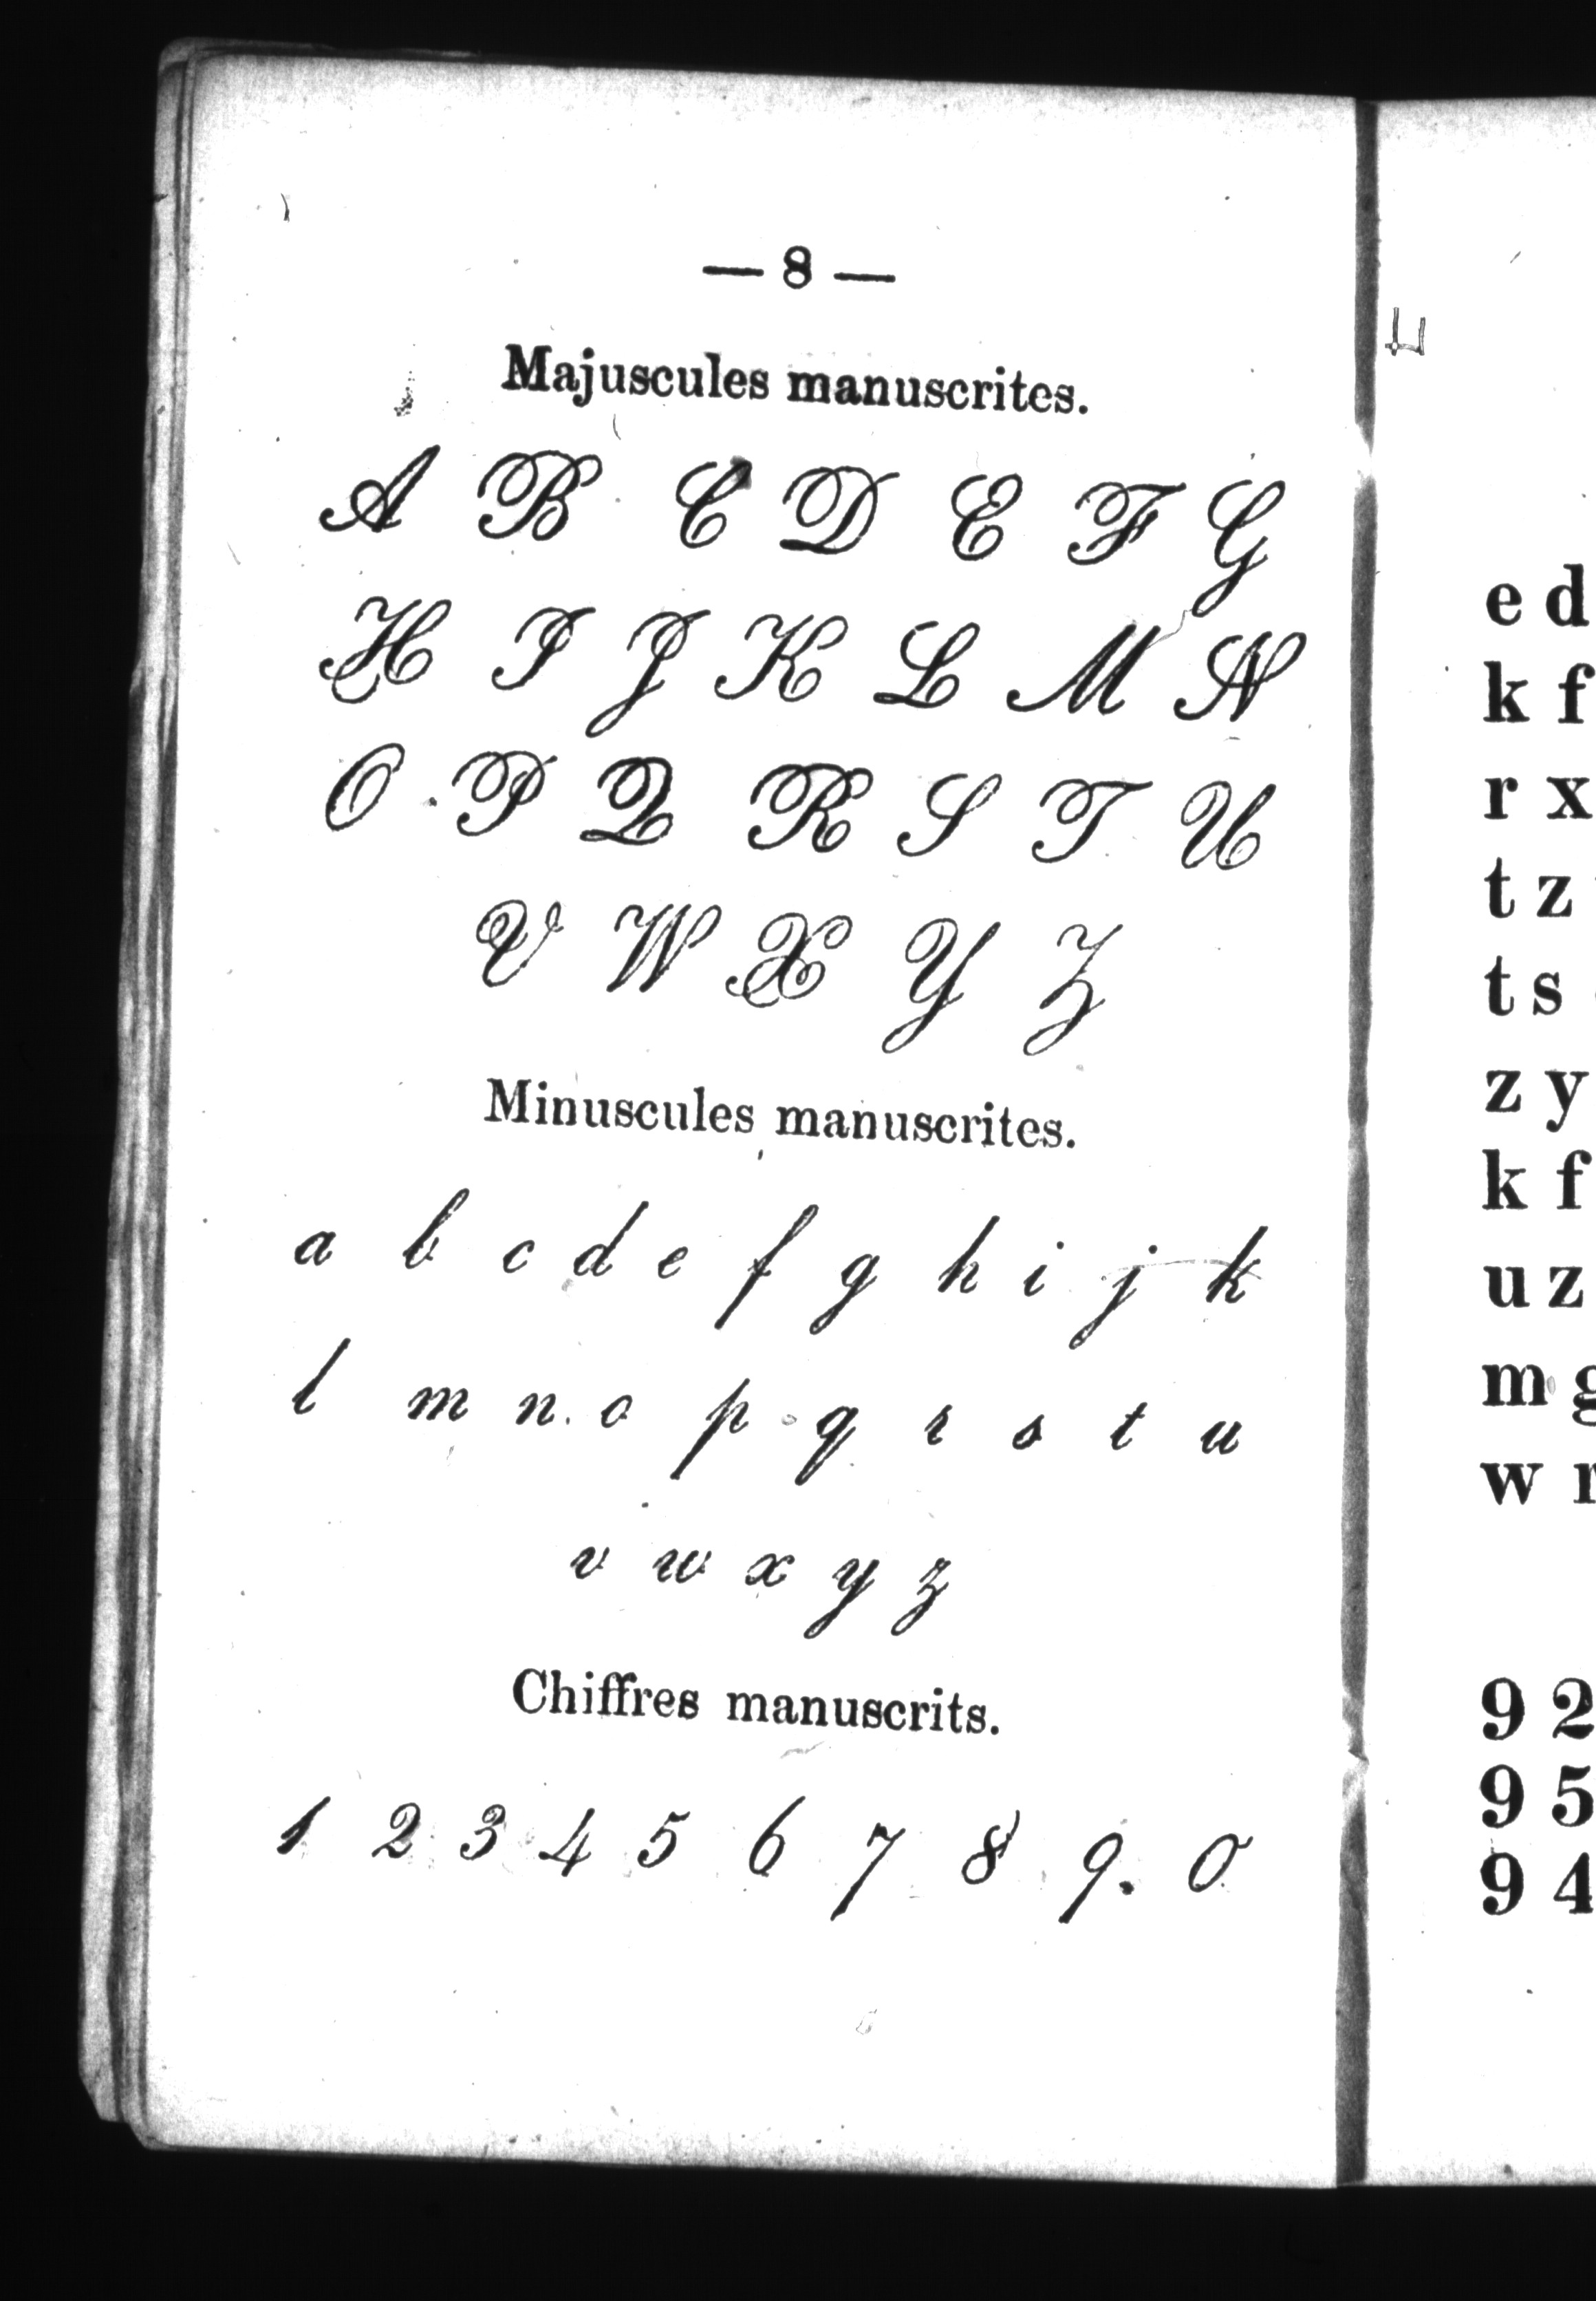 — 8 —
Majuscules manuscrites.
A B C D E F G
H I J K L M N
O P Q R S T U
V W X Y Z
Minuscules manuscrites.
a b c d e f g h i j k
l m n o p q r s t u
v w x y z
Chiffres manuscrits.
1 2 3 4 5 6 7 8 9. 0
e d
k f
r x
t z
t s
z y
k f
u z
m g
w r
9 2
9 5
9 4